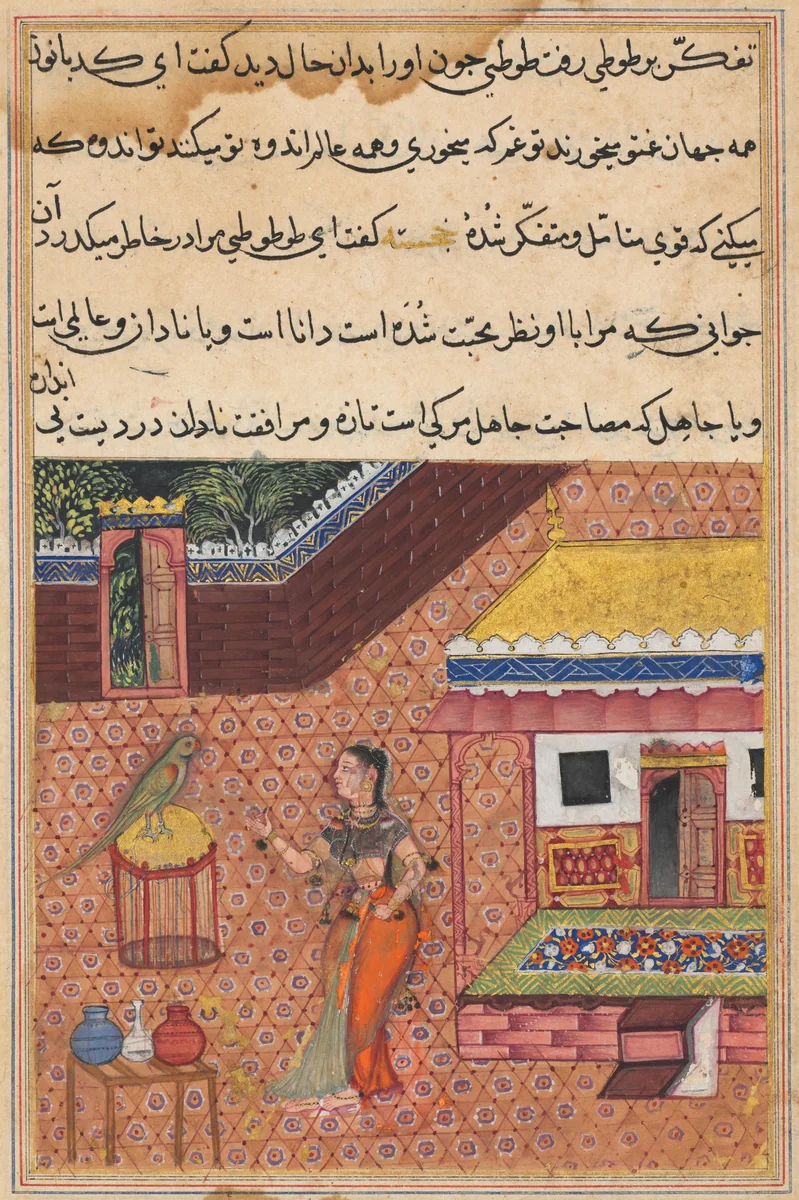 تفکّر بر طوطی رفت طوطی جون او را بدان حال دید کفت ای کدبانو
همه جهان غم تو میخورند تو غم که میخوری و همه عالم اندوه تو میکنند تو اندوه که
میکنی که قوی متامّل و متفکّر شُدهٔ خجسته کفت ای طوطی مرا در خاطر میکدرد آن
جوانی که مرا با او نظر محبّت شُدَه است دانا است و یا نادان و عالم است
و یا جاهل که مصاحبت جاهل مرکی است تازه و مرافقت نادان دردیست بی اندازه